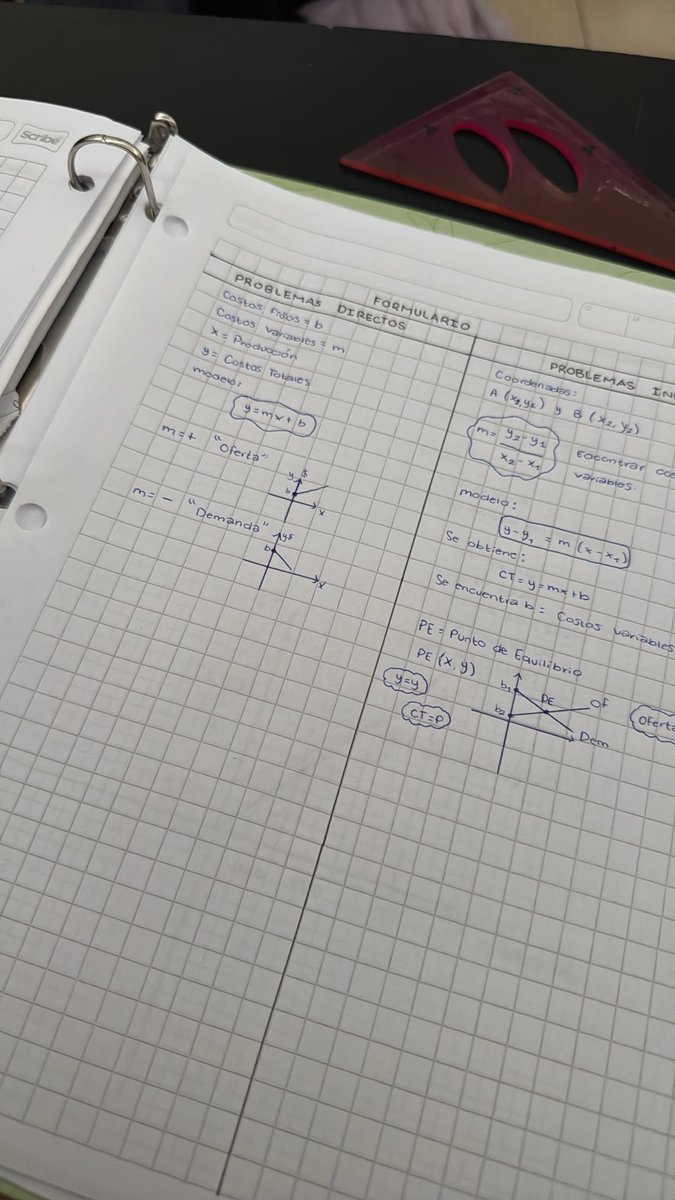 Scribe
FORMULARIO
PROBLEMAS DIRECTOS
Costos Fijos = b
Costos variables = m
x = Producción
y = Costos Totales
modelo:
y = mx + b
m = + "Oferta"
y $
b
x
m = - "Demanda"
y $
b
x
PROBLEMAS IN
Coordenadas:
A (x₁, y₁) y B (x₂, y₂)
m = y₂ - y₁
x₂ - x₁
Encontrar cos
variables.
modelo:
y - y₁ = m (x - x₁)
Se obtiene:
CT = y = mx + b
Se encuentra b = Costos variables
PE = Punto de Equilibrio
PE (x, y)
y = y
CT = P
b₁
PE
Of
b₂
Dem
Oferta